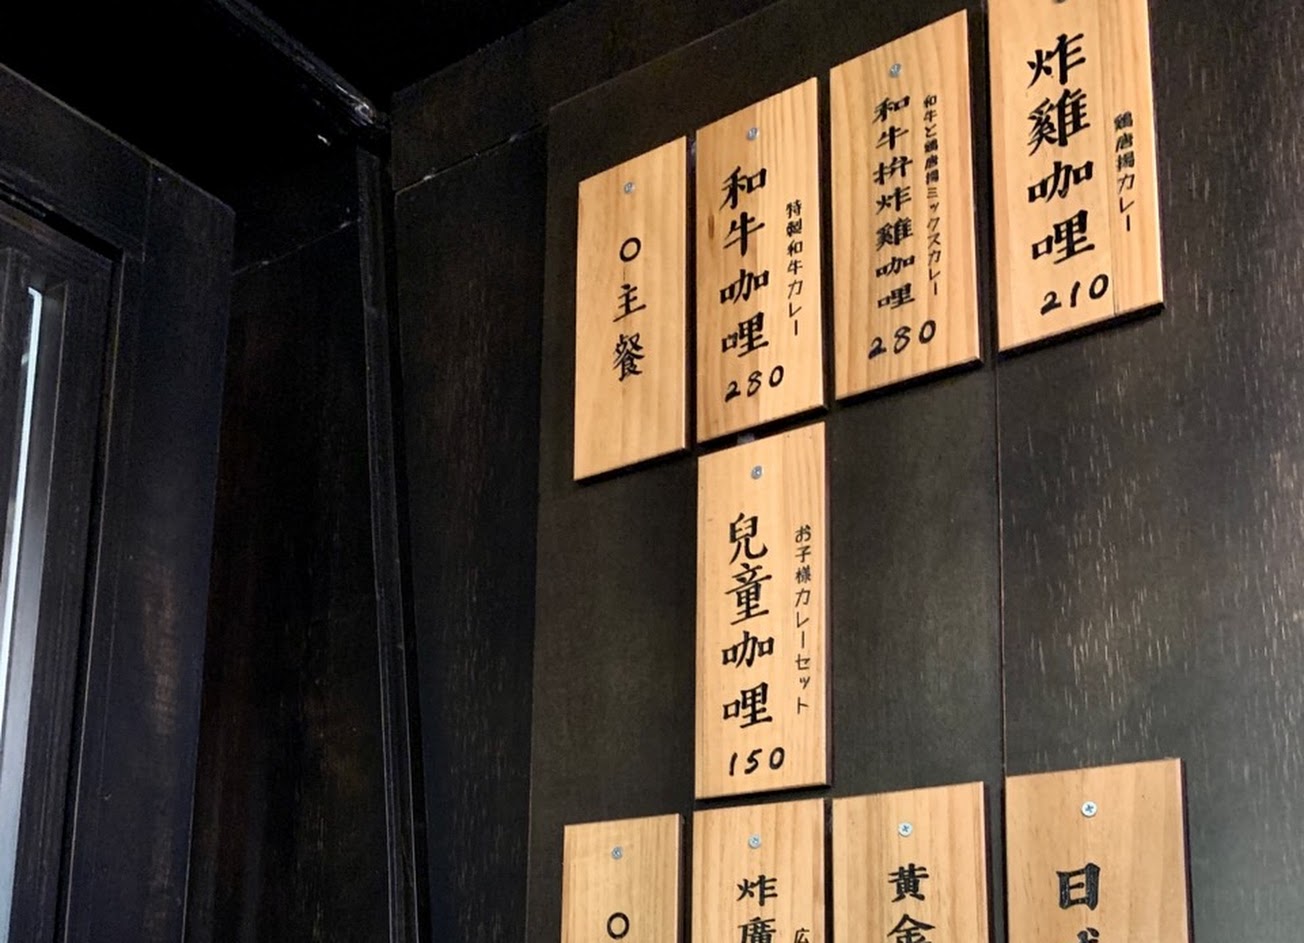 ○主餐
和牛咖哩
特製和牛カレー
280
和牛拚炸雞咖哩
和牛と鶏唐揚ミックスカレー
280
炸雞咖哩
鶏唐揚カレー
210
兒童咖哩
お子様カレーセット
150
○
炸廣
広
黃金
日